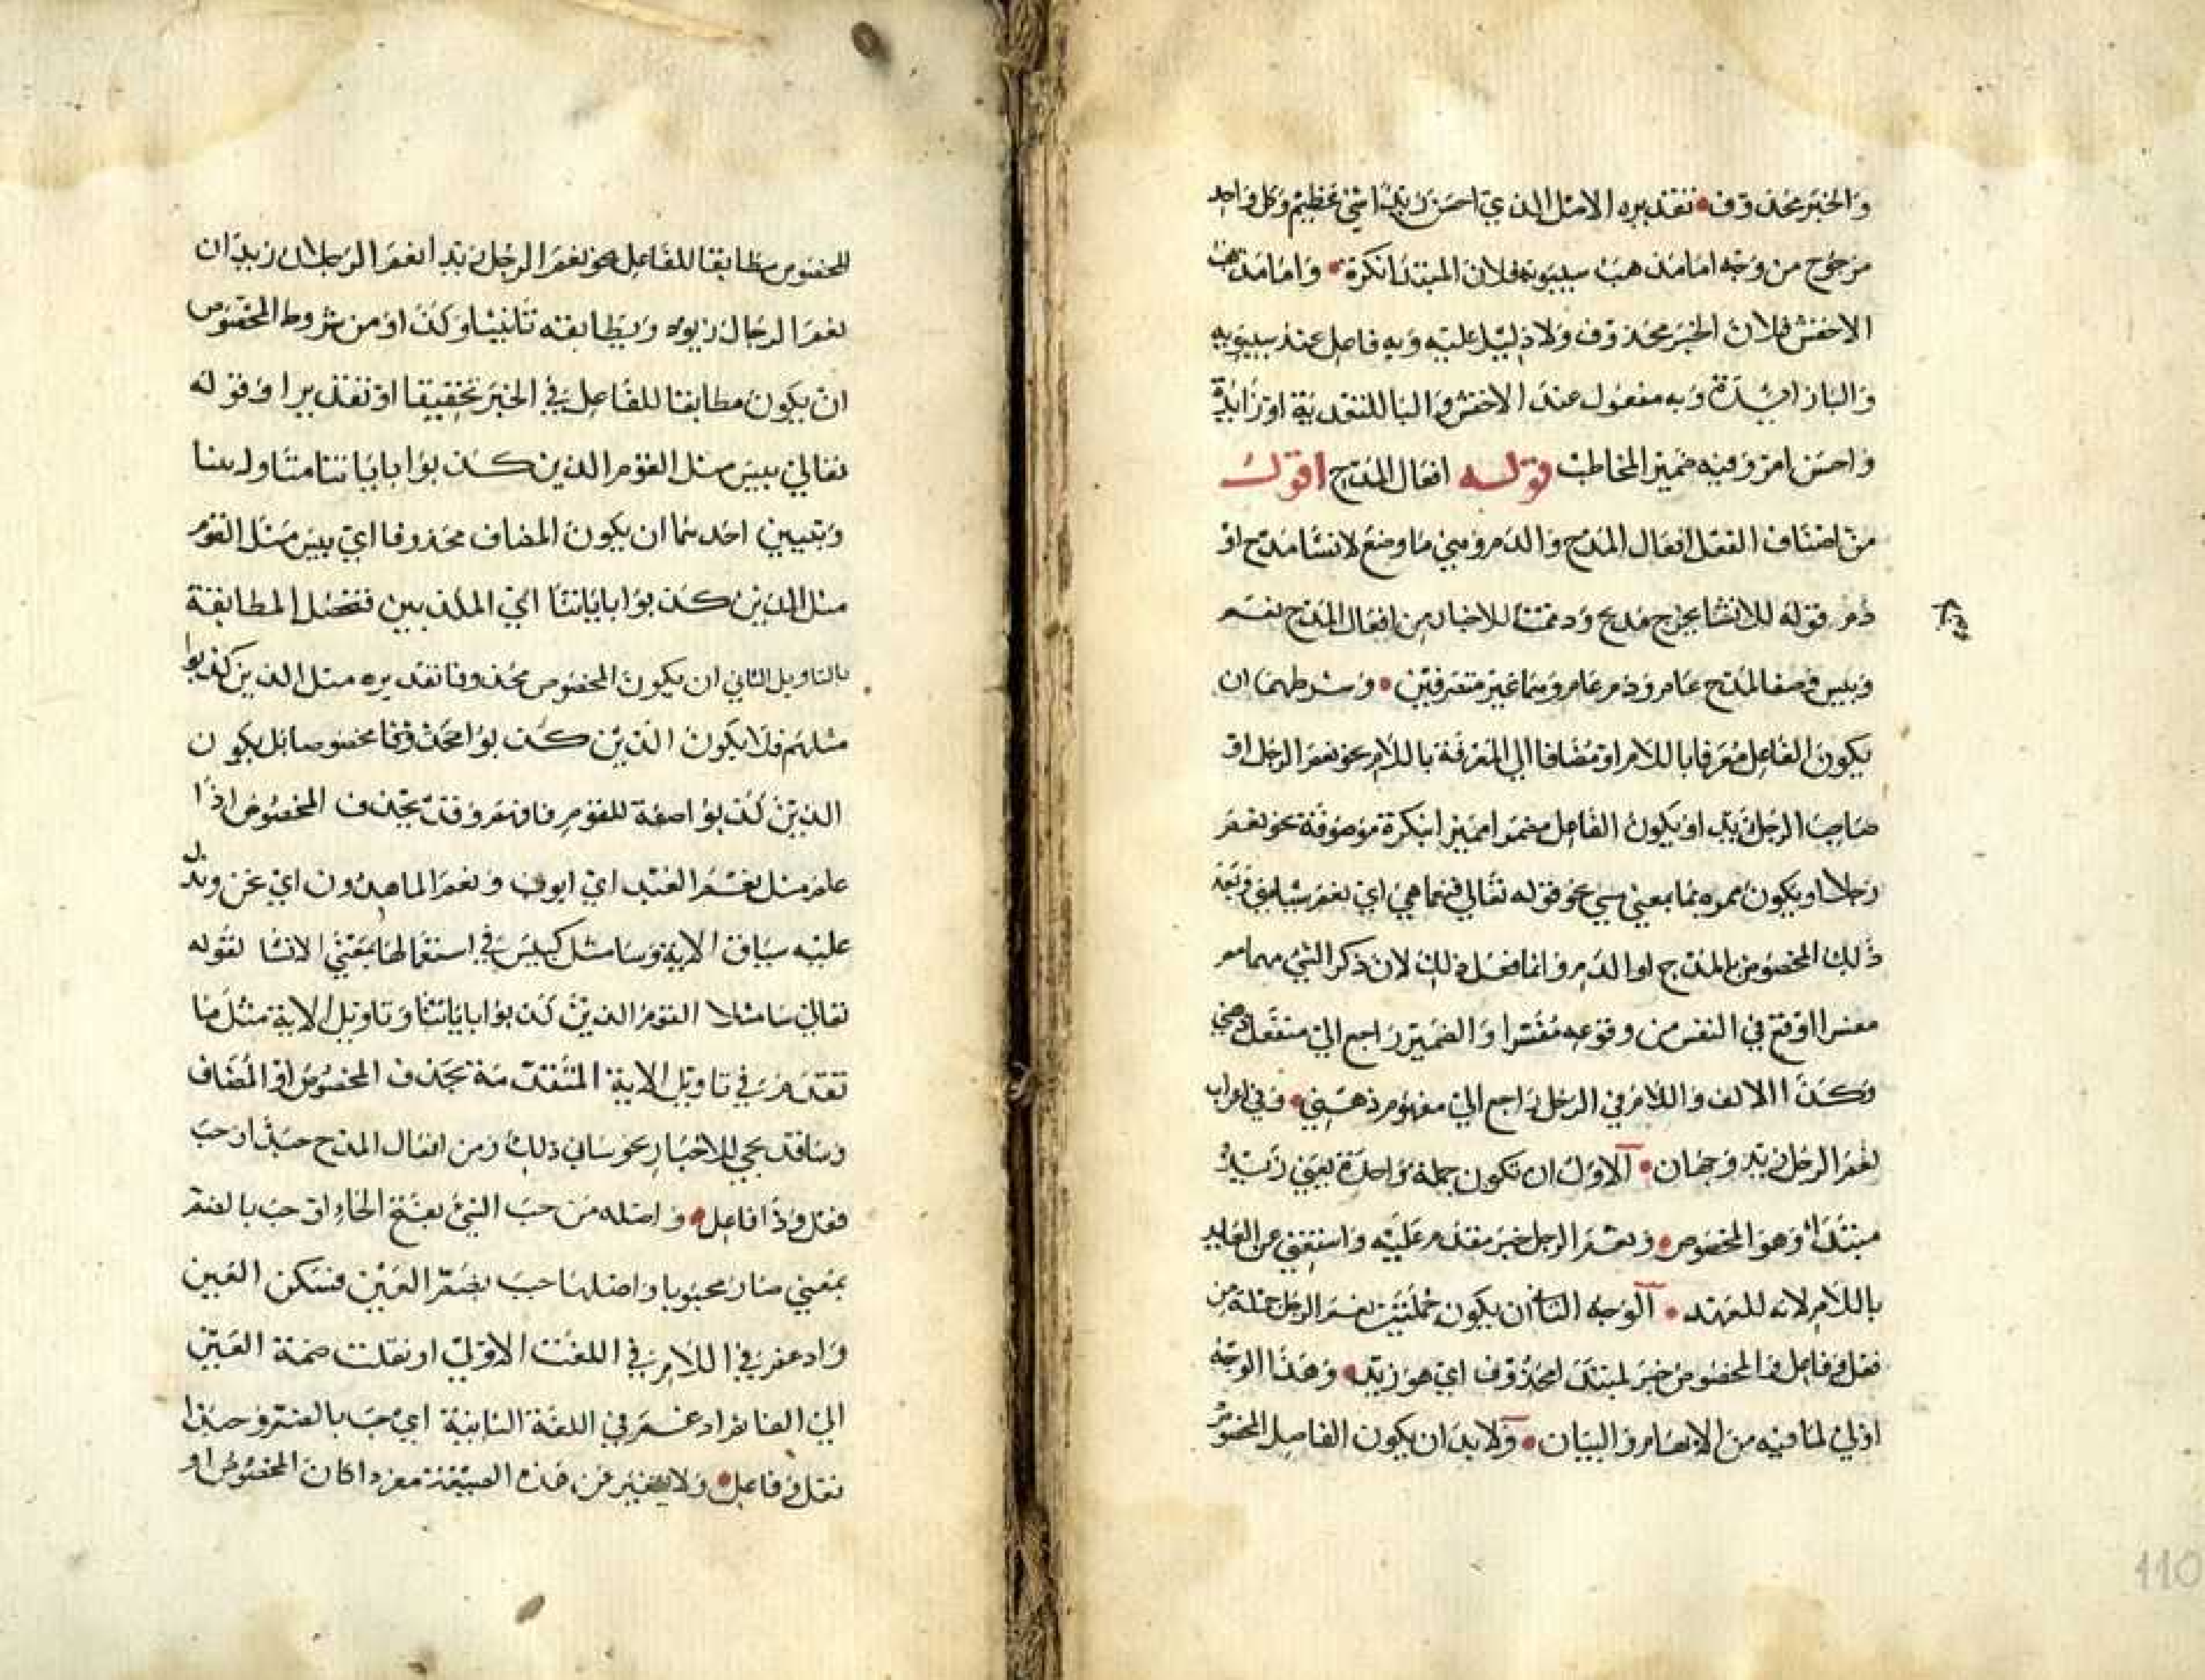 والخبر محذوف تقديره الامثل الذي احسن زيدا شي عظيم وكل واحد
مرجوح من وجه اما مذهب سيبويه فلان المبتدا نكرة واما مذهب
الاخفش فلان الخبر محذوف ولا دليل عليه وبه فاعل عند سيبويه
والبا زايدة وبه مفعول عند الاخفش والبا للتعدية او زايدة
واحسن امر وفيه ضمير المخاطب قوله افعال المدح اقول
من اصناف الفعل افعال المدح والذم وهي ما وضع لانشا مدح او
ذم قوله للانشا يخرج مدح وذممت للاخبار من افعال المدح نعم
وبيس وضعا لمدح عام وذم عام وهما غير متصرفين وشرطهما ان
يكون الفاعل معرفا باللام او مضافا الي المعرفة باللام نحو نعم الرجل او
صاحب الرجل زيد او يكون الفاعل مضمرا مميزا بنكرة موصوفة نحو نعم
رجلا او يكون مميزه بما بمعني شي نحو قوله تعالي فنعما هي اي نعم شيا هي وبعد
ذلك المخصوص بالمدح او الذم وانما فعل ذلك لان ذكر الشي مبهما ثم
مفسرا اوقع في النفس من وقوعه مفسرا والضمير راجع الي متعقل ذهني
وكذا الالف واللام في الرجل راجع الي مفهوم ذهني وفي اعراب
نعم الرجل زيد وجهان الاول ان تكون جملة واحدة يعني زيد
مبتدا وهو المخصوص ونعم الرجل خبر مقدم عليه واستغني عن العايد
باللام لانه للعهد الوجه الثاني ان يكون جملتين نعم الرجل جملة من
فعل وفاعل والمخصوص خبر لمبتدا محذوف اي هو زيد وهذا الوجه
اولي لما فيه من الابهام والبيان ولا بد ان يكون الفاصل المخصوص
المخصوص مطابقا للفاعل نحو نعم الرجل زيد نعم الرجلان زيدان
نعم الرجال زيدون ويطابقه تانيثا وكذا ومن شروط المخصوص
ان يكون مطابقا للفاعل في الخبر تحقيقا او تقديرا وقوله
تعالي بيس مثل القوم الذين كذبوا باياتنا متاول بنا
وتعيين احدهما ان يكون المضاف محذوفا اي بيس مثل القوم
مثل الذين كذبوا باياتنا اي المكذبين فتحصل المطابقة
بالتاويل الثاني ان يكون المخصوص محذوفا تقديره مثل الذين كذبوا
مثلهم فلا يكون الذين كذبوا محذوفا مخصوصا بل يكون
الذين كذبوا صفة للقوم فافهم وقد يحذف المخصوص اذا
علم مثل نعم العبد اي ايوب ونعم الماهدون اي نحن ويدل
عليه سياق الاية وسا مثل كبيس في استعمالها بمعني الانشا لقوله
تعالي سا مثلا القوم الذين كذبوا باياتنا وتاويل الاية مثل ما
تقدم في تاويل الاية المتقدمة بحذف المخصوص او المضاف
وسا قد يجي للاخبار نحو ساني ذلك ومن افعال المدح حبذا وحب
فعل وذا فاعل واصله من حب الشي بفتح الحاء او حب بالضم
بمعني صار محبوبا واصلها حبب بضم العين فسكن العين
وادغم في اللام في اللغت الاولي او نقلت ضمة العين
الي الفا ثم ادغم في اللغة الثانية اي حب بالضم وحبذا
فعل وفاعل ولا يتغير عن هذه الصيغة مفردا كان المخصوص او
110